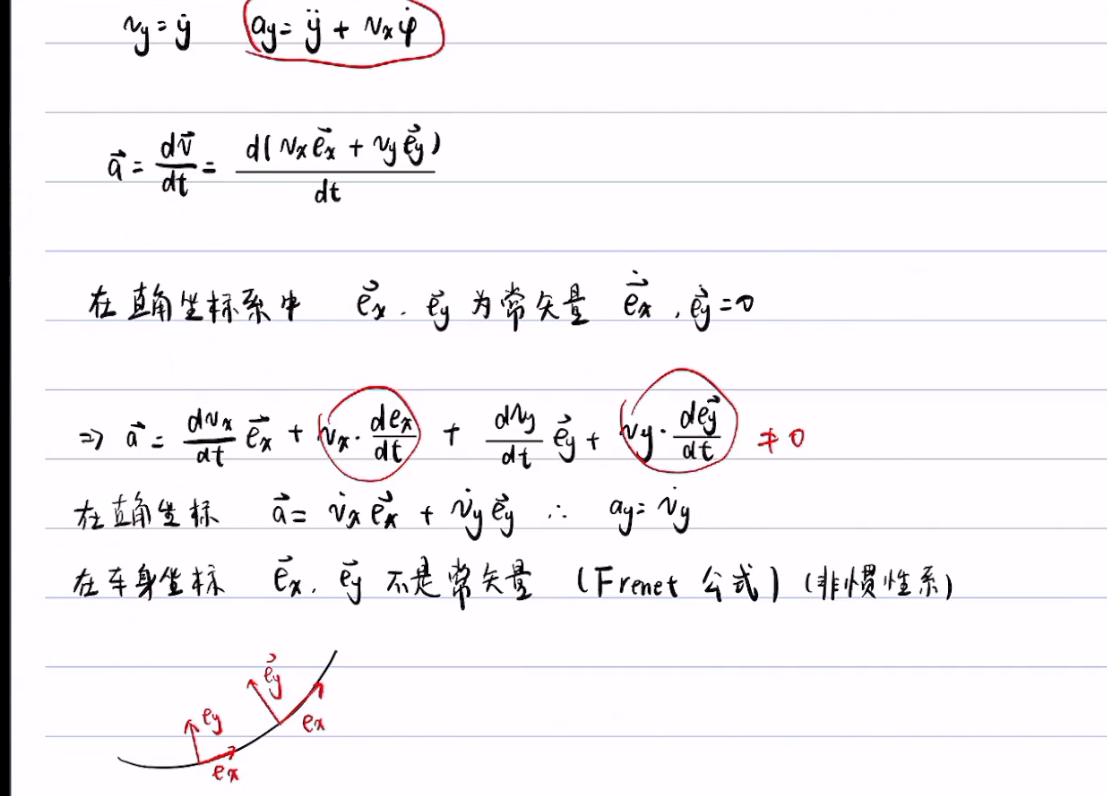 v_y = ẏ   a_y = ÿ + v_x φ̇
a⃗ = dv⃗/dt = d(v_x e⃗_x + v_y e⃗_y)/dt
在直角坐标系中   e⃗_x . e⃗_y 为常矢量   ė⃗_x , ė⃗_y = 0
⇒ a⃗ = dv_x/dt e⃗_x + v_x · de_x/dt + dv_y/dt e⃗_y + v_y · de⃗_y/dt ≠ 0
在直角坐标   a⃗ = v̇_x e⃗_x + v̇_y e⃗_y   ∴   a_y = v̇_y
在车身坐标   e⃗_x . e⃗_y 不是常矢量 (Frenet 公式) (非惯性系)
e⃗_y
e_y   e_x
e_x